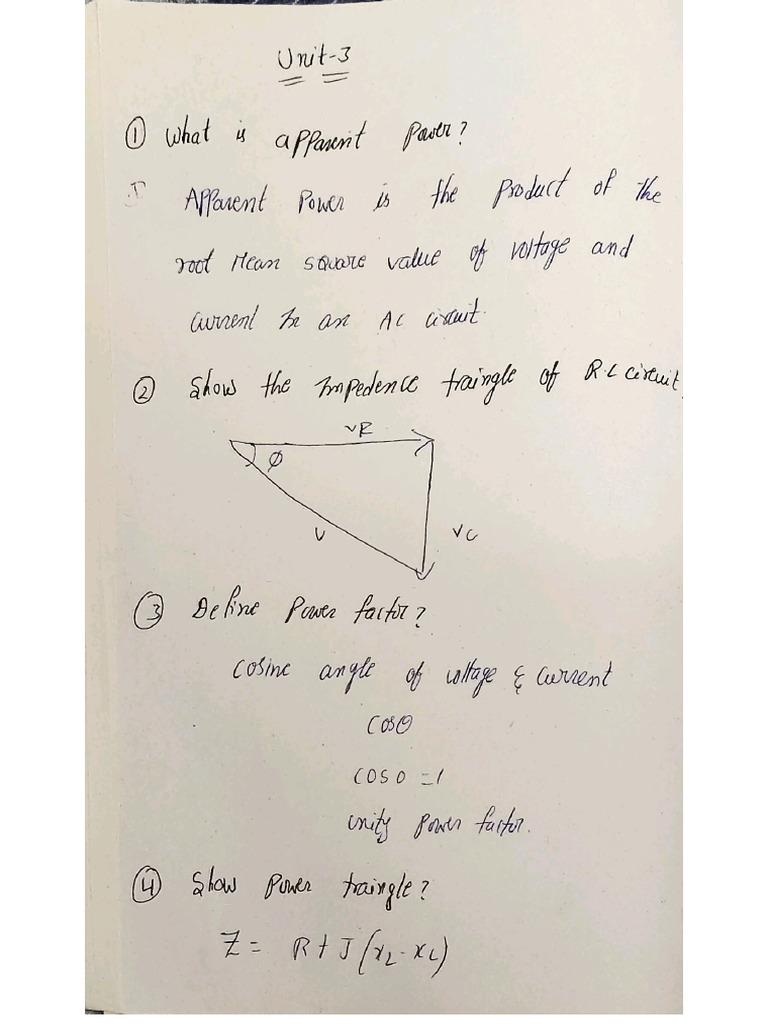 Unit-3
① What is apparent power?
Apparent Power is the product of the
root Mean square value of voltage and
current In an AC circuit.
② Show the Impedence traingle of R.C circuit.
VR
φ
V
VC
③ Define Power factor?
Cosine angle of voltage & current
Cosθ
COS 0 = 1
Unity Power factor.
④ Show Power traingle?
Z = R + J (XL - XC)